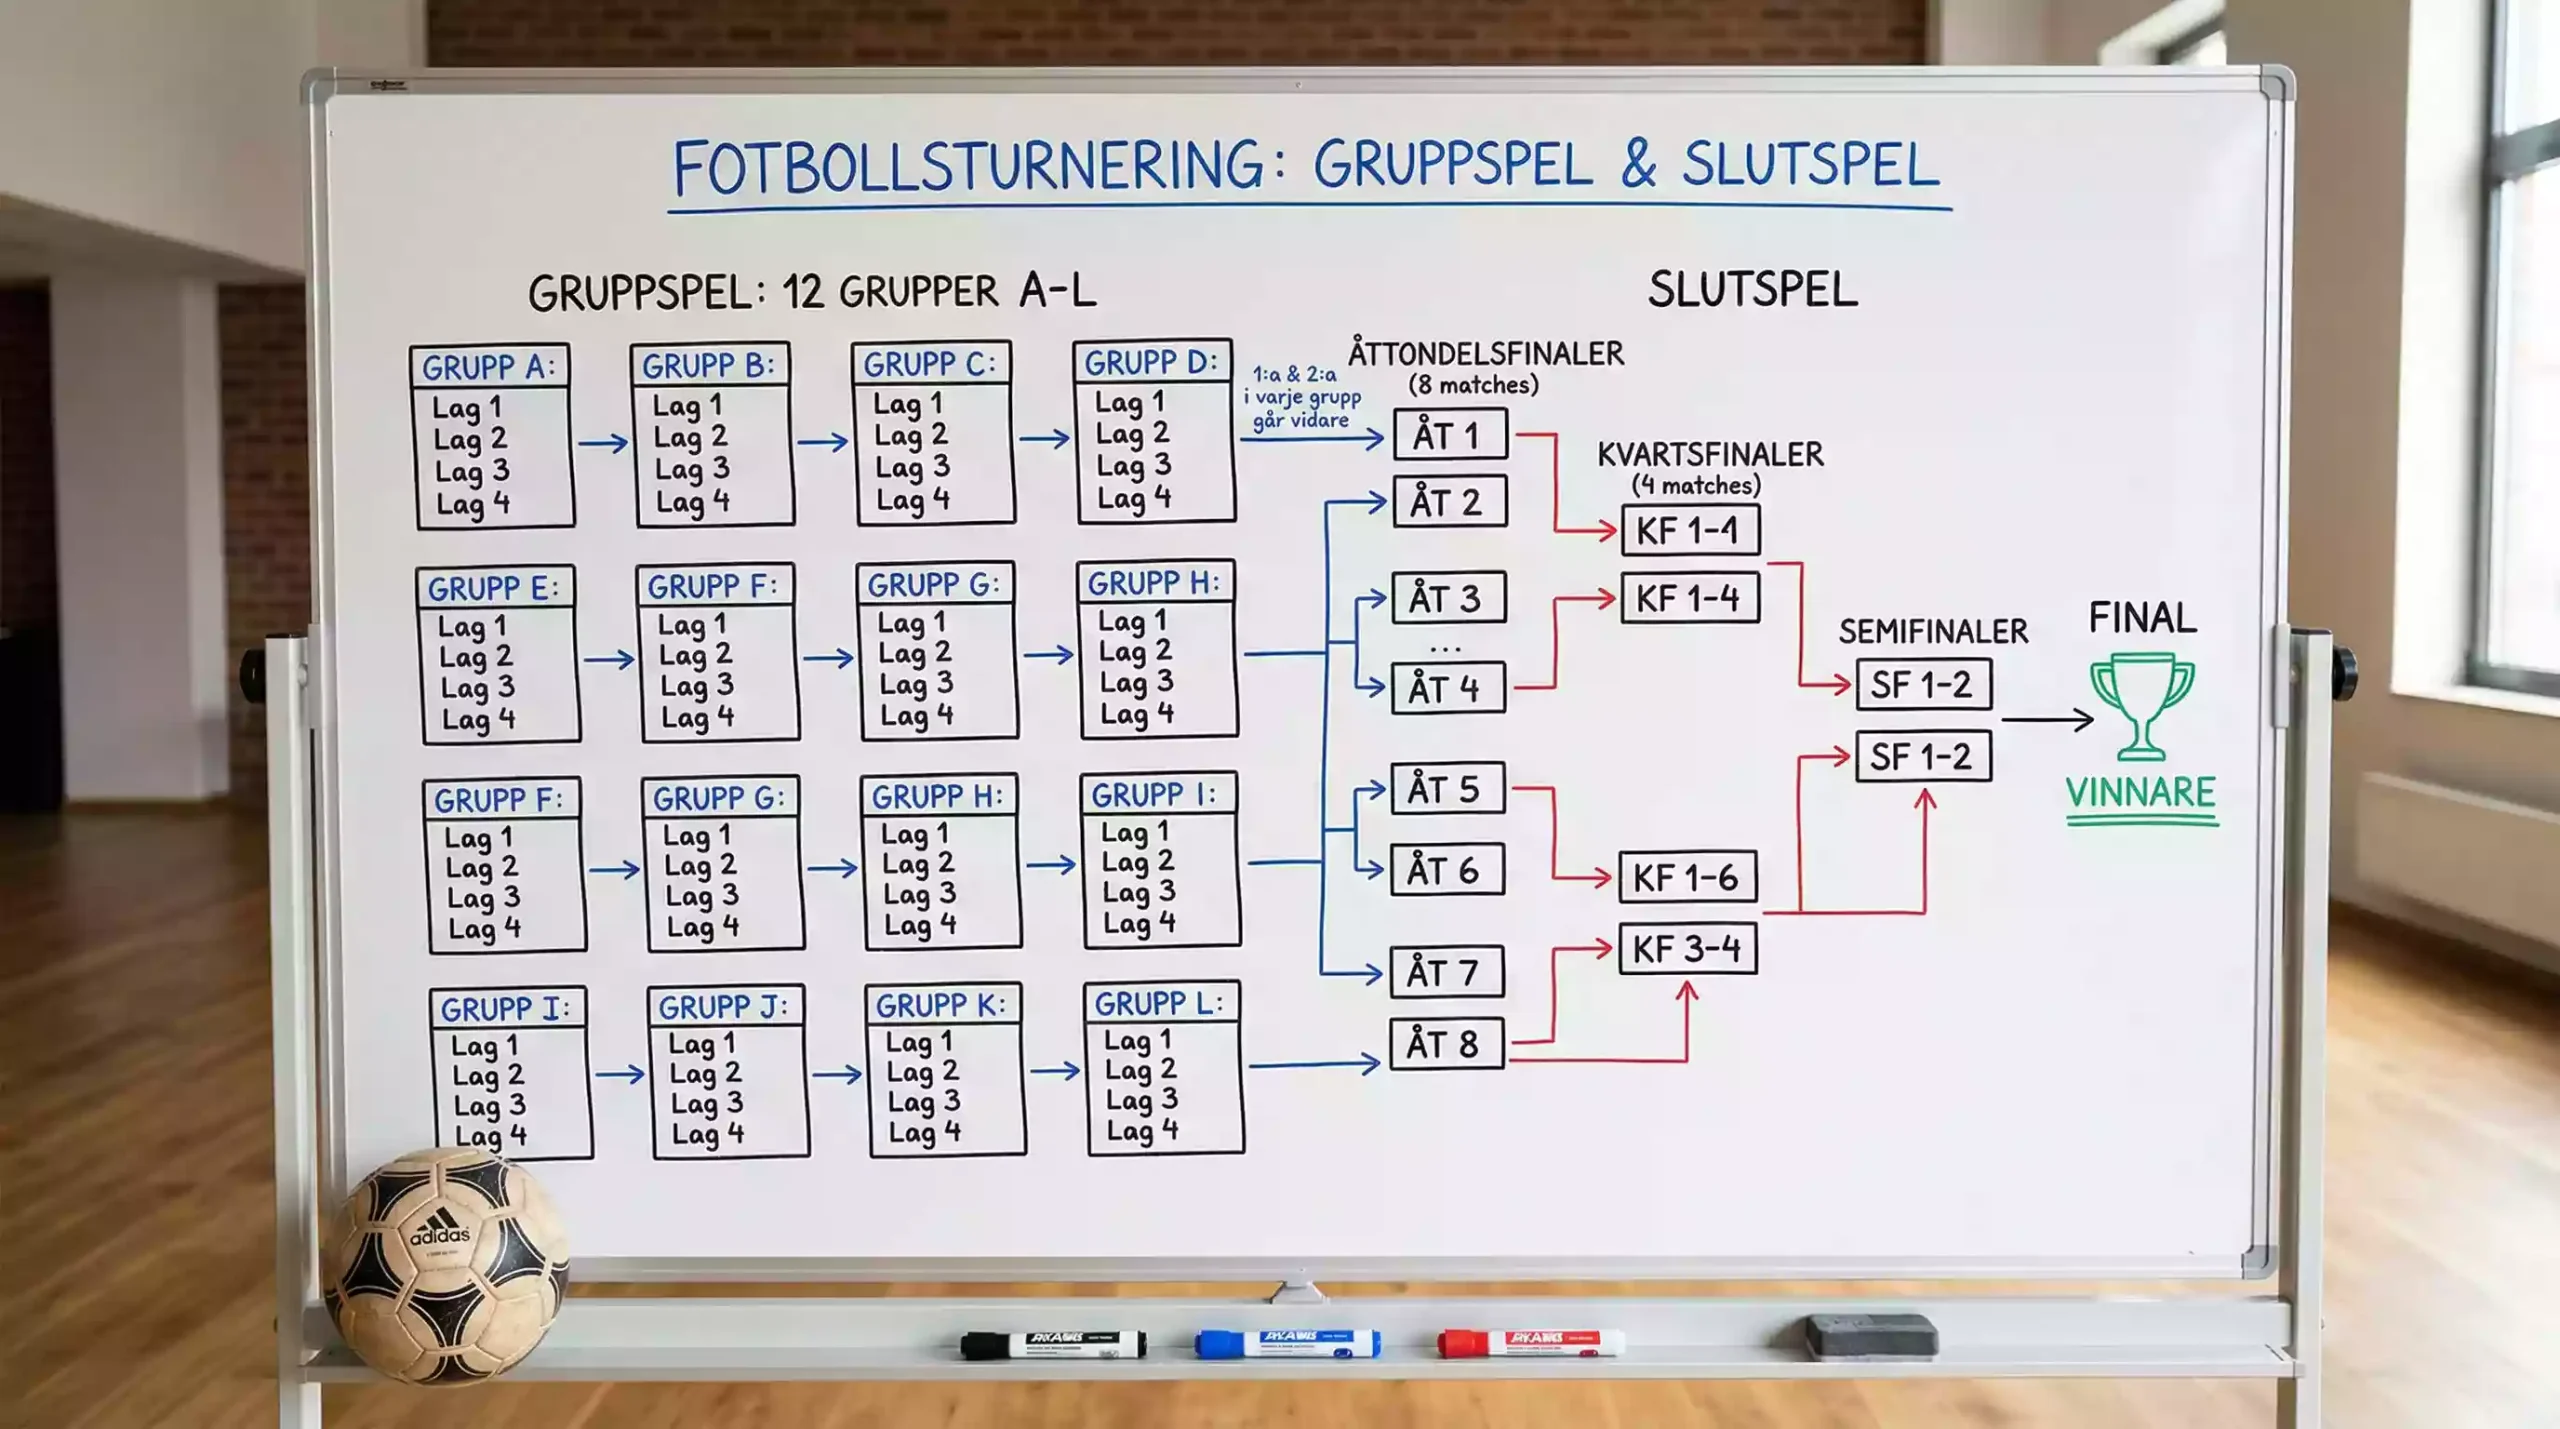 FOTBOLLSTURNERING: GRUPPSPEL & SLUTSPEL
GRUPPSPEL: 12 GRUPPER A-L
GRUPP A:
Lag 1
Lag 2
Lag 3
Lag 4
GRUPP B:
Lag 1
Lag 2
Lag 3
Lag 4
GRUPP C:
Lag 1
Lag 2
Lag 3
Lag 4
GRUPP D:
Lag 1
Lag 2
Lag 3
Lag 4
GRUPP E:
Lag 1
Lag 2
Lag 3
Lag 4
GRUPP F:
Lag 1
Lag 2
Lag 3
Lag 4
GRUPP G:
Lag 1
Lag 2
Lag 3
Lag 4
GRUPP H:
Lag 1
Lag 2
Lag 3
Lag 4
GRUPP F:
Lag 1
Lag 2
Lag 3
Lag 4
GRUPP G:
Lag 1
Lag 2
Lag 3
Lag 4
GRUPP H:
Lag 1
Lag 2
Lag 3
Lag 4
GRUPP I:
Lag 1
Lag 2
Lag 3
Lag 4
GRUPP I:
Lag 1
Lag 2
Lag 3
Lag 4
GRUPP J:
Lag 1
Lag 2
Lag 3
Lag 4
GRUPP K:
Lag 1
Lag 2
Lag 3
Lag 4
GRUPP L:
Lag 1
Lag 2
Lag 3
Lag 4
1:a & 2:a
i varje grupp
går vidare
SLUTSPEL
ÅTTONDELSFINALER
(8 matches)
ÅT 1
ÅT 2
ÅT 3
...
ÅT 4
ÅT 5
ÅT 6
ÅT 7
ÅT 8
KVARTSFINALER
(4 matches)
KF 1-1
KF 1-4
KF 1-6
KF 3-4
SEMIFINALER
SF 1-2
SF 1-2
FINAL
VINNARE
adidas